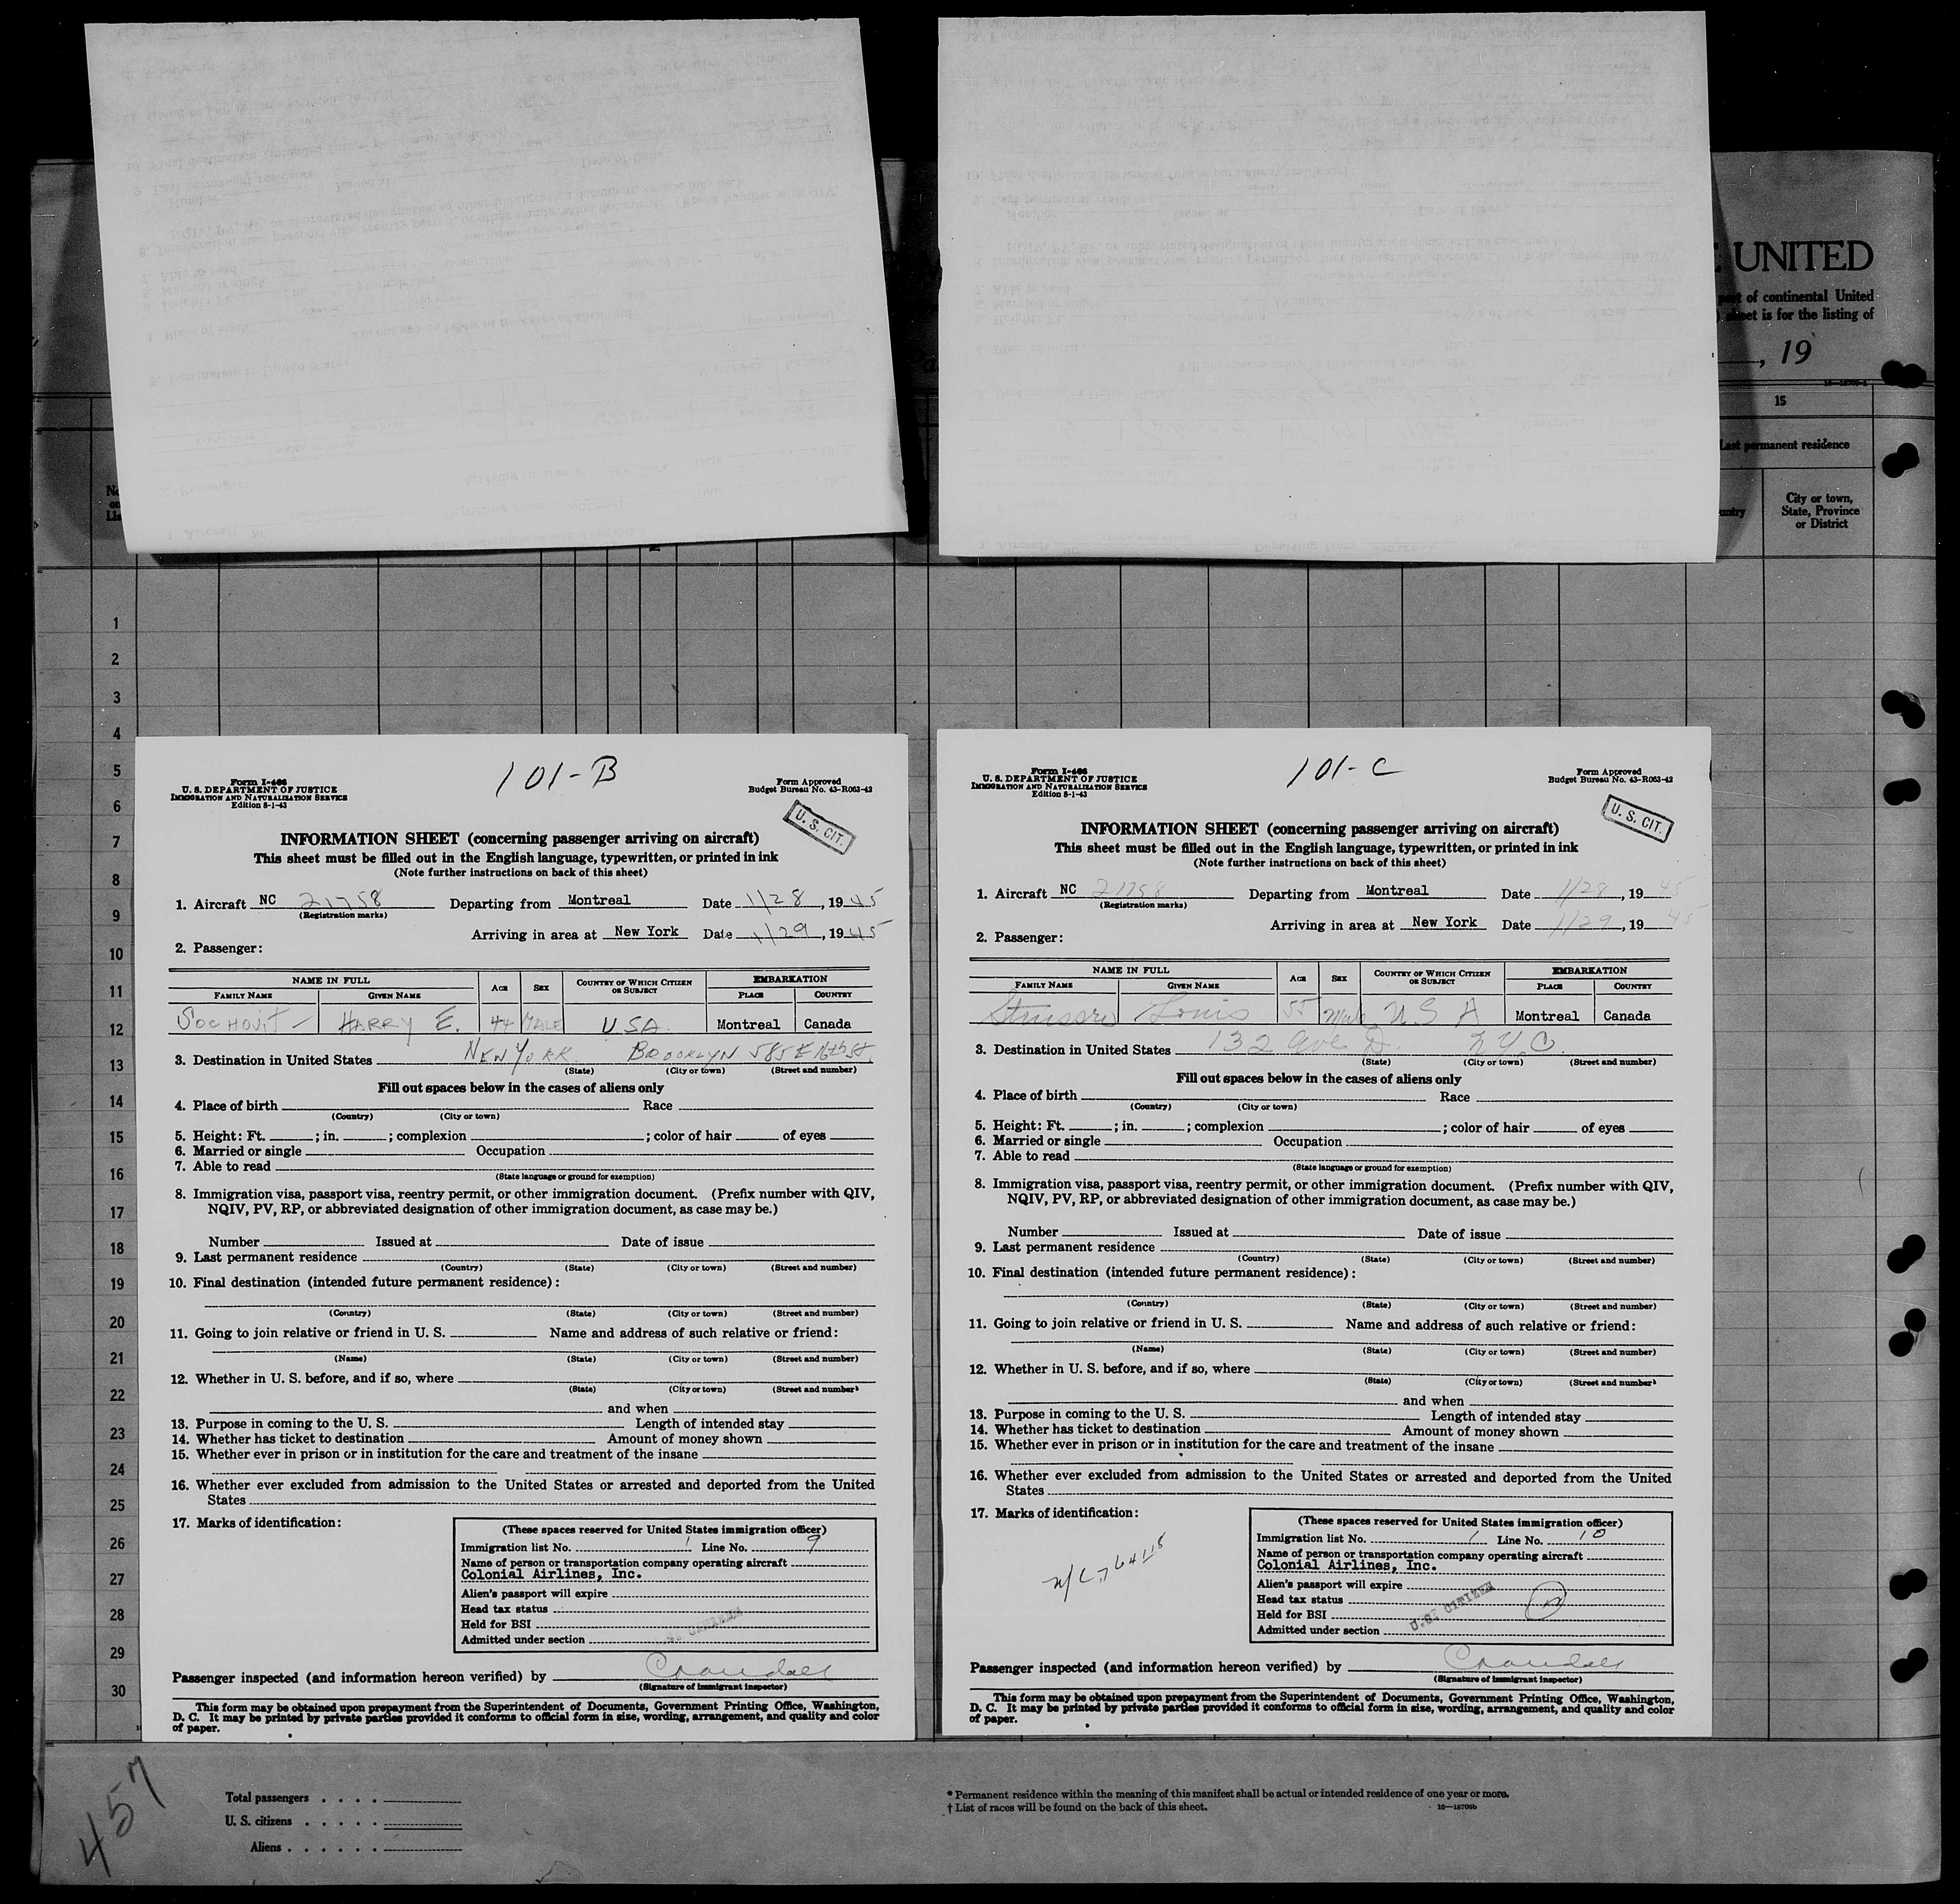 UNITED
of continental United
sheet is for the listing of
, 19
15
Last permanent residence
City or town,
State, Province
or District
1
2
3
4
5
6
7
8
9
10
11
12
13
14
15
16
17
18
19
20
21
22
23
24
25
26
27
28
29
30
101-B
Form I-466
U. S. DEPARTMENT OF JUSTICE
IMMIGRATION AND NATURALIZATION SERVICE
Edition 8-1-43
Form Approved
Budget Bureau No. 43-R063-42
U. S. CIT.
INFORMATION SHEET (concerning passenger arriving on aircraft)
This sheet must be filled out in the English language, typewritten, or printed in ink
(Note further instructions on back of this sheet)
1. Aircraft NC 21758 Departing from Montreal Date 1/28, 1945
(Registration marks)
Arriving in area at New York Date 1/29, 1945
2. Passenger:
NAME IN FULL AGE SEX COUNTRY OF WHICH CITIZEN OR SUBJECT EMBARKATION
FAMILY NAME GIVEN NAME PLACE COUNTRY
HARRY E. 44 MALE USA Montreal Canada
3. Destination in United States NEW YORK BROOKLYN 585 E 16th St.
(State) (City or town) (Street and number)
Fill out spaces below in the cases of aliens only
4. Place of birth Race
(Country) (City or town)
5. Height: Ft. ; in. ; complexion ; color of hair of eyes
6. Married or single Occupation
7. Able to read
(State language or ground for exemption)
8. Immigration visa, passport visa, reentry permit, or other immigration document. (Prefix number with QIV,
NQIV, PV, RP, or abbreviated designation of other immigration document, as case may be.)
Number Issued at Date of issue
9. Last permanent residence
(Country) (State) (City or town) (Street and number)
10. Final destination (intended future permanent residence):
(Country) (State) (City or town) (Street and number)
11. Going to join relative or friend in U. S. Name and address of such relative or friend:
(Name) (State) (City or town) (Street and number)
12. Whether in U. S. before, and if so, where
(State) (City or town) (Street and number)
and when
13. Purpose in coming to the U. S. Length of intended stay
14. Whether has ticket to destination Amount of money shown
15. Whether ever in prison or in institution for the care and treatment of the insane
16. Whether ever excluded from admission to the United States or arrested and deported from the United
States
17. Marks of identification:
(These spaces reserved for United States immigration officer)
Immigration list No. 1 Line No. 9
Name of person or transportation company operating aircraft
Colonial Airlines, Inc.
Alien's passport will expire
Head tax status
Held for BSI
Admitted under section
Passenger inspected (and information hereon verified) by Crandall
(Signature of immigrant inspector)
This form may be obtained upon prepayment from the Superintendent of Documents, Government Printing Office, Washington,
D. C. It may be printed by private parties provided it conforms to official form in size, wording, arrangement, and quality and color
of paper.
101-C
Form I-466
U. S. DEPARTMENT OF JUSTICE
IMMIGRATION AND NATURALIZATION SERVICE
Edition 8-1-43
Form Approved
Budget Bureau No. 43-R063-42
U. S. CIT.
INFORMATION SHEET (concerning passenger arriving on aircraft)
This sheet must be filled out in the English language, typewritten, or printed in ink
(Note further instructions on back of this sheet)
1. Aircraft NC 21758 Departing from Montreal Date 1/28, 1945
(Registration marks)
Arriving in area at New York Date 1/29, 1945
2. Passenger:
NAME IN FULL AGE SEX COUNTRY OF WHICH CITIZEN OR SUBJECT EMBARKATION
FAMILY NAME GIVEN NAME PLACE COUNTRY
Louis 55 Male U S A Montreal Canada
3. Destination in United States 132 Ave D. N.Y.C.
(State) (City or town) (Street and number)
Fill out spaces below in the cases of aliens only
4. Place of birth Race
(Country) (City or town)
5. Height: Ft. ; in. ; complexion ; color of hair of eyes
6. Married or single Occupation
7. Able to read
(State language or ground for exemption)
8. Immigration visa, passport visa, reentry permit, or other immigration document. (Prefix number with QIV,
NQIV, PV, RP, or abbreviated designation of other immigration document, as case may be.)
Number Issued at Date of issue
9. Last permanent residence
(Country) (State) (City or town) (Street and number)
10. Final destination (intended future permanent residence):
(Country) (State) (City or town) (Street and number)
11. Going to join relative or friend in U. S. Name and address of such relative or friend:
(Name) (State) (City or town) (Street and number)
12. Whether in U. S. before, and if so, where
(State) (City or town) (Street and number)
and when
13. Purpose in coming to the U. S. Length of intended stay
14. Whether has ticket to destination Amount of money shown
15. Whether ever in prison or in institution for the care and treatment of the insane
16. Whether ever excluded from admission to the United States or arrested and deported from the United
States
17. Marks of identification:
(These spaces reserved for United States immigration officer)
Immigration list No. 1 Line No. 10
Name of person or transportation company operating aircraft
Colonial Airlines, Inc.
Alien's passport will expire
Head tax status
Held for BSI
Admitted under section
U.S. CITIZEN
Passenger inspected (and information hereon verified) by Crandall
(Signature of immigrant inspector)
This form may be obtained upon prepayment from the Superintendent of Documents, Government Printing Office, Washington,
D. C. It may be printed by private parties provided it conforms to official form in size, wording, arrangement, and quality and color
of paper.
457
Total passengers
U. S. citizens
Aliens
* Permanent residence within the meaning of this manifest shall be actual or intended residence of one year or more.
† List of races will be found on the back of this sheet.
16—18709b